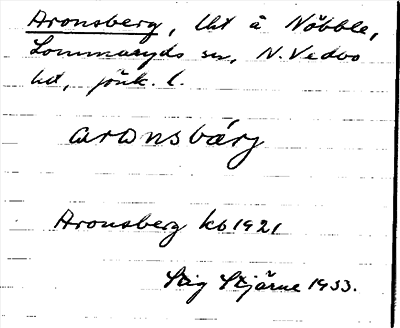 Aronsberg, lht å Nöbble,
Lommaryds sn, N. Vedbo
hd, Jönk. l.
aronsbärj
Aronsberg kb 1921
Stig Stjärne 1933.